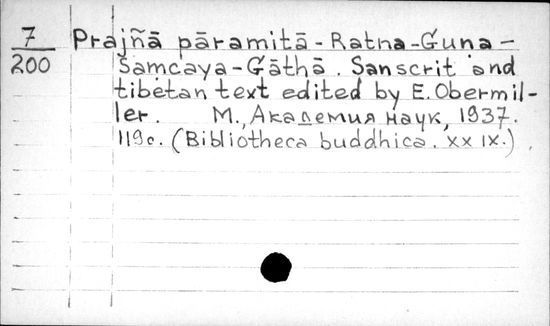 7 Prajñā pāramitā - Ratna - Guna -
200 Samcaya - Gāthā. Sanscrit and
tibetan text edited by E. Obermil-
ler. М., Академия наук, 1937.
119с. (Bibliotheca buddhica. XX IX.)